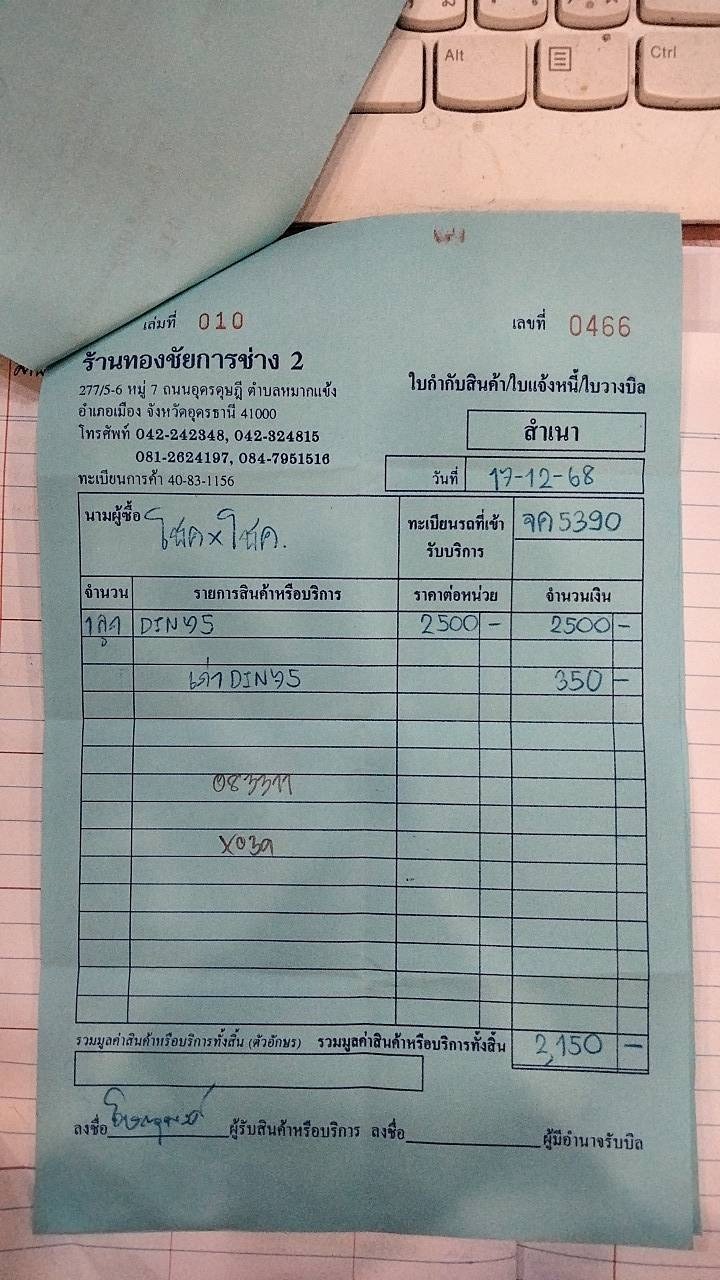 Alt
Ctrl
เล่มที่ 010
เลขที่ 0466
ร้านทองชัยการช่าง 2
277/5-6 หมู่ 7 ถนนอุดรดุษฎี ตำบลหมากแข้ง
อำเภอเมือง จังหวัดอุดรธานี 41000
โทรศัพท์ 042-242348, 042-324815
081-2624197, 084-7951516
ทะเบียนการค้า 40-83-1156
ใบกำกับสินค้า/ใบแจ้งหนี้/ใบวางบิล
สำเนา
วันที่ 17-12-68
นามผู้ซื้อ โชค×โชค.
ทะเบียนรถที่เข้ารับบริการ จค5390
จำนวน รายการสินค้าหรือบริการ ราคาต่อหน่วย จำนวนเงิน
1ลูก DIN75 2500 - 2500 -
เก่าDIN75 350 -
รวมมูลค่าสินค้าหรือบริการทั้งสิ้น (ตัวอักษร) รวมมูลค่าสินค้าหรือบริการทั้งสิ้น 2,150 -
ลงชื่อ ผู้รับสินค้าหรือบริการ ลงชื่อ ผู้มีอำนาจรับบิล